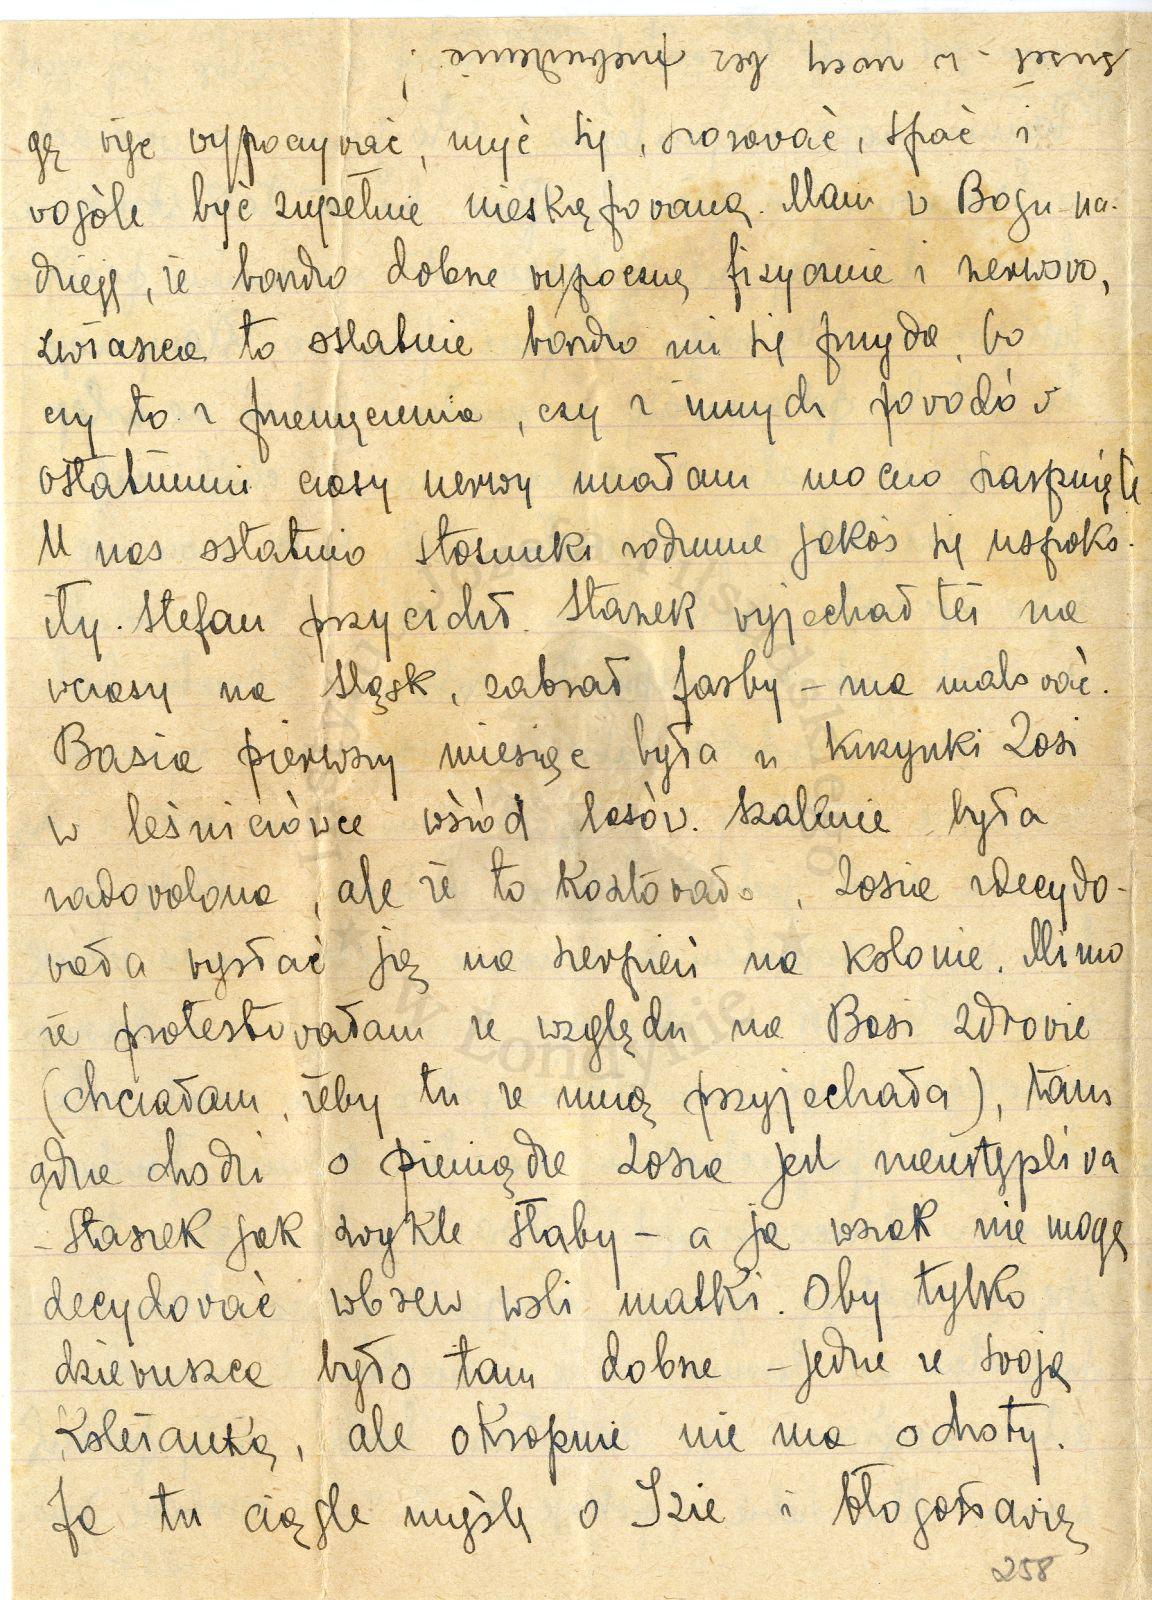 snset - w nocy bez przebudzenia!
gę więc wypoczywać, myć się, prasować, spać i
wogóle być zupełnie nieskrępowaną. Mam w Bogu na-
dzieję, że bardzo dobrze wypocznę fizycznie i nerwowo,
zwłaszcza to ostatnie bardzo mi się przyda, bo
czy to z przemęczenia, czy z innych powodów
ostatnimi czasy nerwy miałam mocno naspięte
U nas ostatnio stosunki rodzinne jakoś się uspoko-
iły. Stefan przycichł. Staszek wyjechał też na
wczasy na Śląsk, zabrał farby - ma malować.
Basia pierwszy miesiąc była u kuzynki Zosi
w leśniczówce wśród lasów. Szalenie była
zadowolona, ale że to kosztowało, Zosia zdecydo-
wała wysłać ją na sierpień na kolonie. Mimo
że protestowałam ze względu na Basi zdrowie
(chciałam, żeby tu ze mną przyjechała), tam
gdzie chodzi o pieniądze Zosia jest nieustępliwa
- Staszek jak zwykle słaby - a ja wszak nie mogę
decydować wbrew woli matki. Oby tylko
dziewuszce było tam dobrze - jedzie ze swoją
koleżanką, ale okropnie nie ma ochoty.
Ja tu ciągle myślę o Izie i błogosławię
258
w Londynie